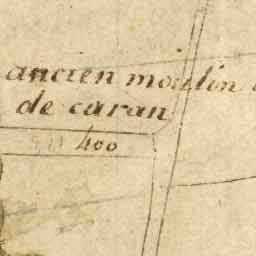 ancien moulin
de caran
400